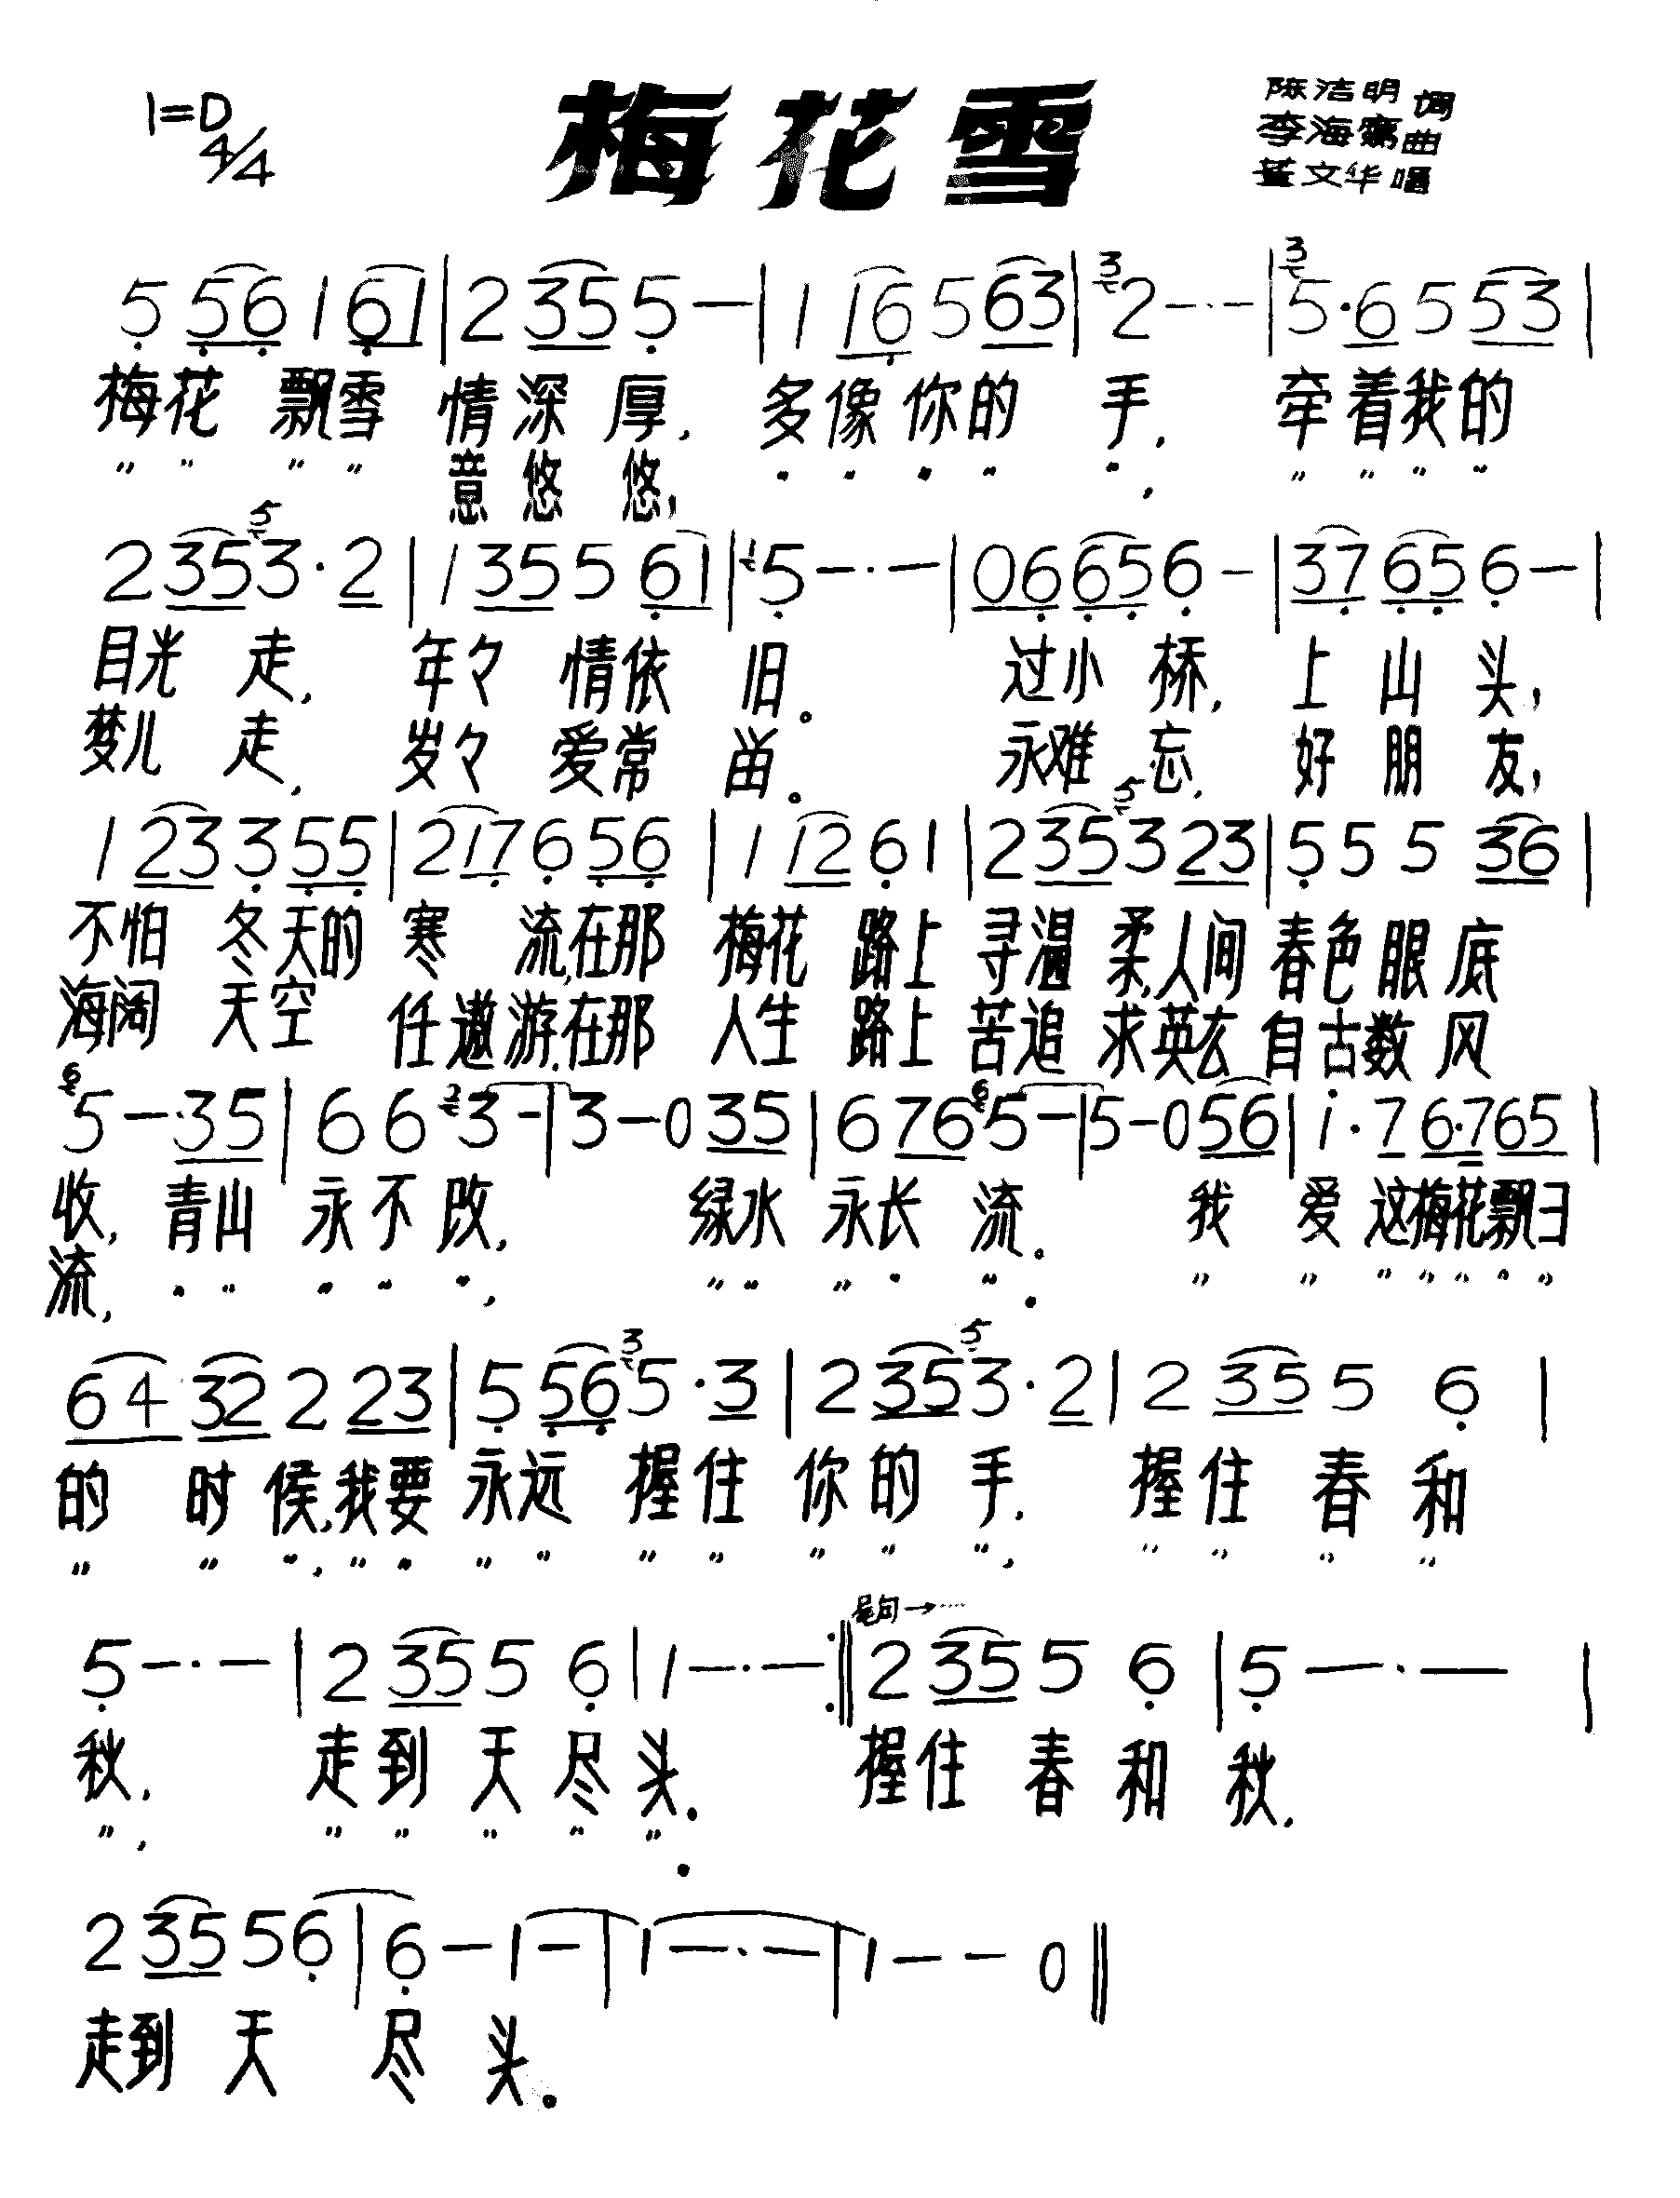 1=D 4/4
梅花雪
陈洁明 词
李海鹰 曲
董文华 唱
5 56 1 61 | 2 35 5 — | 1 16 5 63 | 2 — · — | 5 · 6 5 53 |
梅花 飘雪 情深厚, 多像你的 手, 牵着我的
〃 〃 〃 〃 意悠悠, 〃 〃 〃 〃 〃, 〃 〃 〃 〃
2 35 3 · 2 | 1 35 5 61 | 5 — · — | 06 65 6 — | 37 65 6 — |
目光 走, 年々 情依 旧。 过小 桥, 上 山 头,
梦儿 走, 岁々 爱常 留。 永难 忘, 好 朋 友,
1 23 3 55 | 2 17 6 56 | 1 12 6 1 | 2 35 3 23 | 5 5 5 36 |
不怕 冬天的 寒 流,在那 梅花 路上 寻温 柔,人间 春色 眼 底
海阔 天空 任遨游,在那 人生 路上 苦追 求英雄 自古数 风
5 — · 35 | 6 6 3 — | 3 — 0 35 | 6 76 5 — | 5 — 0 56 | 1 · 7 6·7 65 |
收, 青山 永不 改, 绿水 永长 流。 我 爱 这梅花飘曰
流, 〃 〃 〃 〃 〃, 〃 〃 〃 〃 〃. 〃 〃 〃 〃 〃 〃 〃
64 32 2 23 | 5 56 5 · 3 | 2 35 3 · 2 | 2 35 5 6 |
的 时候,我要 永远 握住 你的 手, 握住 春和
〃 〃 〃, 〃 〃 〃 〃 〃 〃 〃 〃 〃, 〃 〃 〃 〃
尾句→……
5 — · — | 2 35 5 6 | 1 — · — :‖ 2 35 5 6 | 5 — · — |
秋, 走到 天尽头. 握住 春和秋,
〃, 〃 〃 〃 〃 〃.
2 35 5 6 | 6 — 1 — | 1 — · — | 1 — — 0 ‖
走到 天 尽 头。